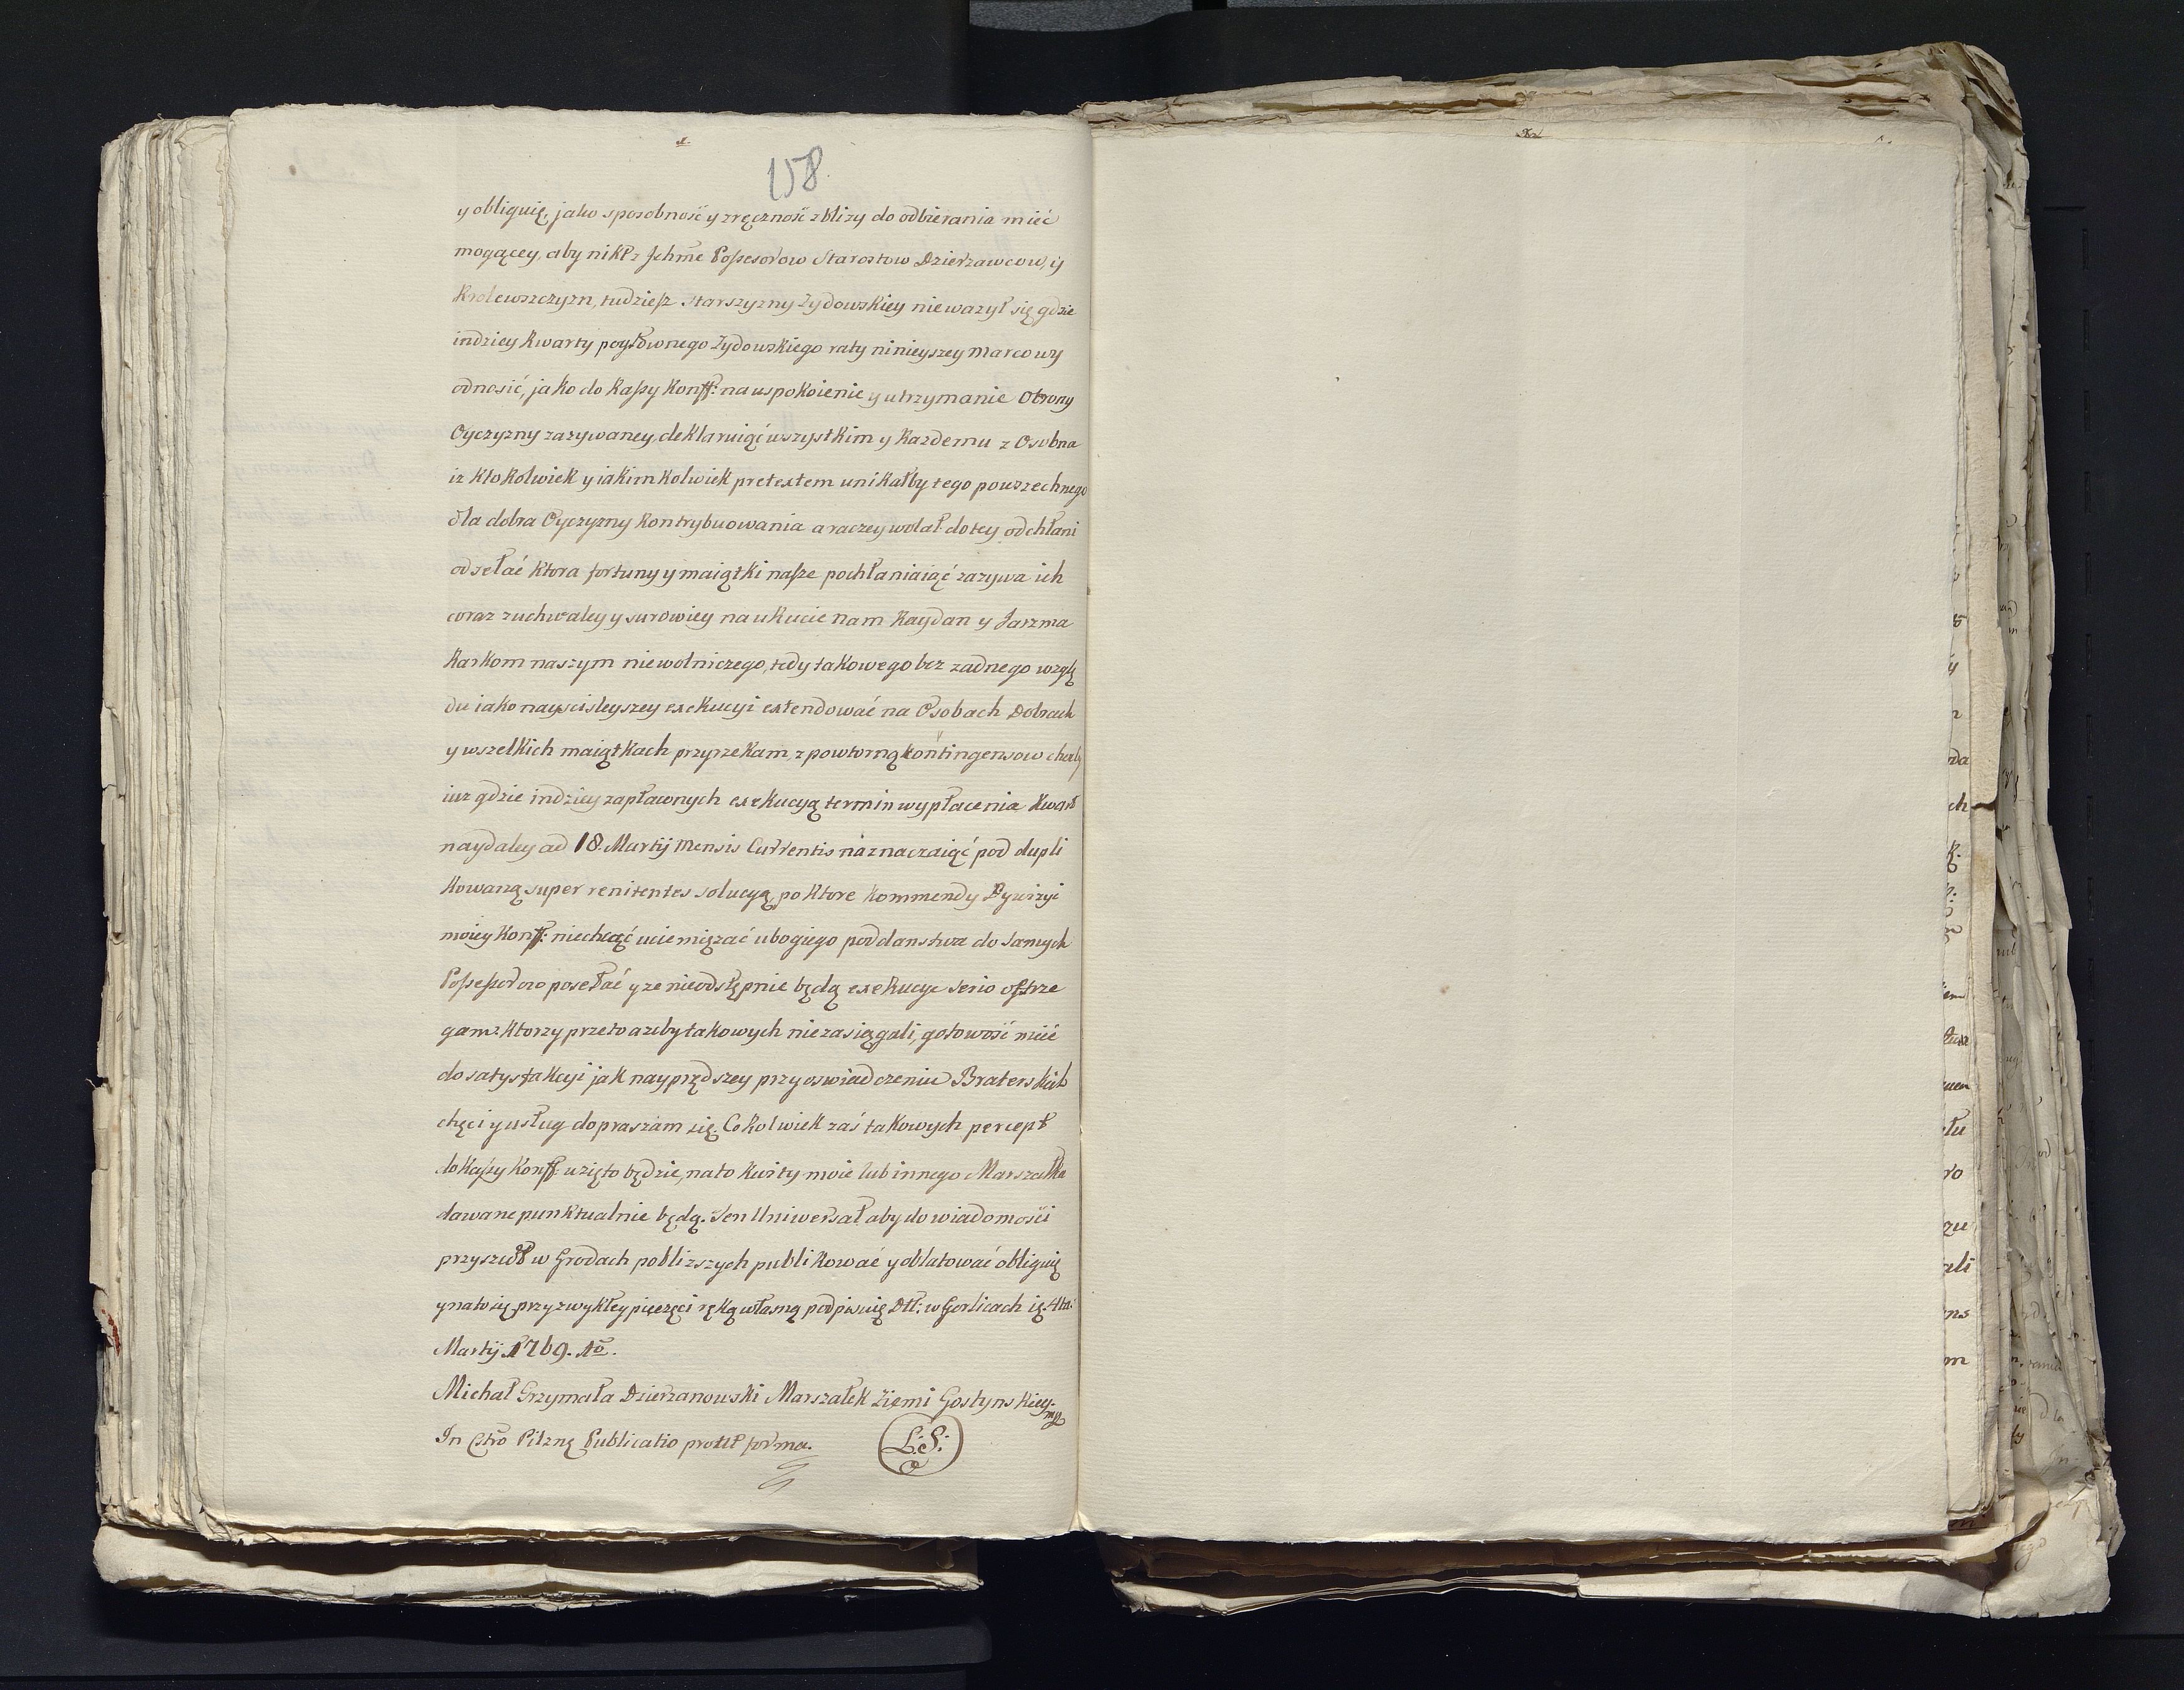 158.
y obliguię, jako sposobność y zręczność zblizy do odbierania mieć
mogącey, aby nikt z Jchm̃c Possesorow Starostow Dzierzawcow, y
Krolewszczyzn, tudziesz Starszyzny Zydowskiey nie wazył się gdzie
indziey Kwarty pogłownego Zydowskiego raty ninieyszey marcowy
odnosić, jako do Kassy Konff: na uspokoienie y utrzymanie Obrony
Oyczyzny zazywaney, deklaruiąć wszystkim y Kazdemu z Osobna
iz Ktokolwiek y iakimkolwiek pretextem unikałby tego powszechnego
dla dobra Oyczyzny Kontrybuowania a raczey wolał do tey odchłani
odsełać Ktora fortuny y maiątki nasze pochłaniaiąć zazywa ich
coraz zuchwaley y surowiey na ukucie nam Kaydan y Jarzma
Karkom naszym niewolniczego, tedy takowego bez zadnego wzglę
du iako nayscisleyszey exekucyi extendować na Osobach Dobrach
y wszelkich maiątkach przyrzekam, z powtorną kontingensow choćby
iuz gdzie indziey zapłaconych exekucyą termin wypłacenia Kwart
naydaley ad 18. Martij Mensis Currentis naznaczaiąć pod dupli
kowaną super renitentes solucyą, po Ktore Kommendy Dywizyi
moiey Konff: niechcąć uciemięzać ubogiego poddanstwa do samych
Possessorow posełać y ze nieodstępnie będą exekucye serio ostrze
gam: Ktorzy przeto azeby takowych nie zasięgali, gotowość mieć
do satysfakcyi jak nayprędszey przy oswiadczeniu Braterskich
chęci y usług dopraszam się. Cokolwiek zaś takowych percept
do Kassy Konff: wzięto będzie, na to Kwity moie lub innego Marszałka
dawane punktualnie będą. Ten Uniwersał aby do wiadomości
przyszedł w Grodach poblizszych publikować y oblatować obliguię
y na to się przy zwykłey pieczęci ręką własną podpisuię Dtt: w Gorlicach
Martij 1769. Aõ.
Michał Grzymała Dzierzanowski Marszałek Ziemi Gostynskiey.
mp
In Cstro Pilzn̨ Publicatio protlt forma.
L: S: